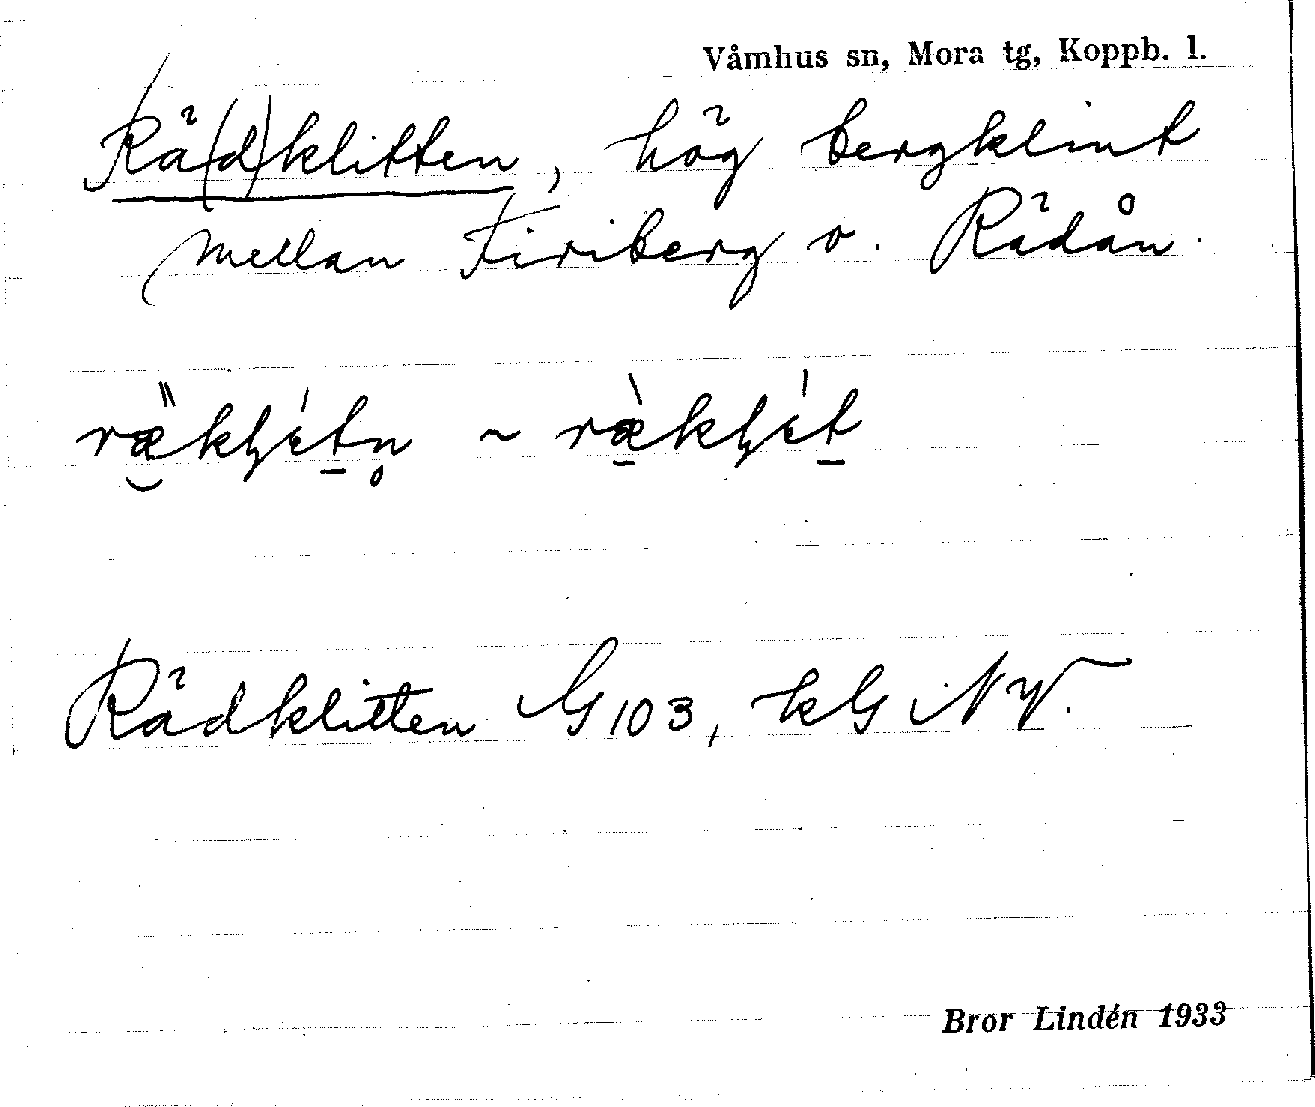 Våmhus sn, Mora tg, Koppb. l.
Rä(d)klitten, hög bergklint
mellan Firiberg o. Rädån.
Rädklitten G103, kG NV.
Bror Lindén 1933